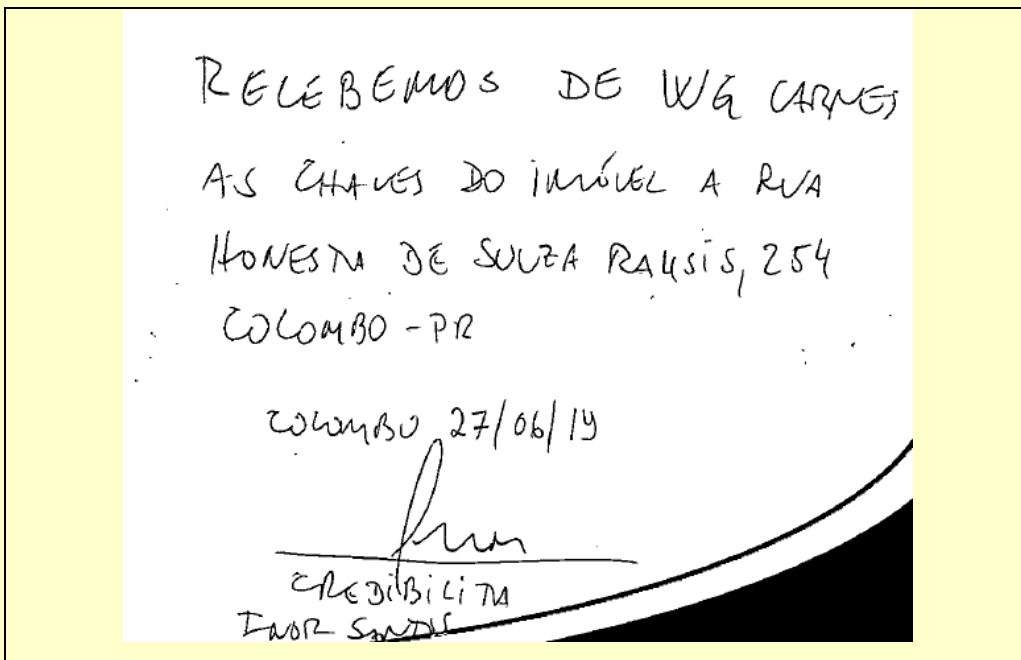 RECEBEMOS DE WG CARNES
AS CHAVES DO IMÓVEL A RUA
HONESTA DE SOUZA RAKSIS, 254
COLOMBO - PR
COLOMBO 27/06/19
CREDIBILITA
SANTOS